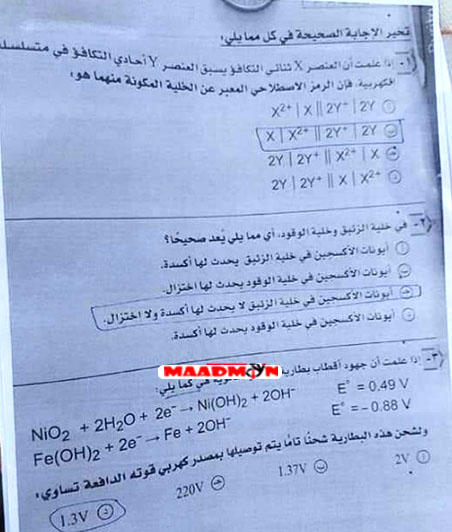 تخير الإجابة الصحيحة في كل مما يلي:
١- إذا علمت أن العنصر X ثنائي التكافؤ يسبق العنصر Y أحادي التكافؤ في متسلسلة
فإن الرمز الاصطلاحي المعبر عن الخلية المكونة منهما هو:
أ X²⁺ | X || 2Y⁺ | 2Y
ب X | X²⁺ || 2Y⁺ | 2Y
ج 2Y | 2Y⁺ || X²⁺ | X
د 2Y | 2Y⁺ || X | X²⁺
٢- في خلية الزئبق وخلية الوقود، أي مما يلي يُعد صحيحًا؟
أ أيونات الأكسجين في خلية الزئبق يحدث لها أكسدة.
ب أيونات الأكسجين في خلية الوقود يحدث لها اختزال.
ج أيونات الأكسجين في خلية الزئبق لا يحدث لها أكسدة ولا اختزال.
د أيونات الأكسجين في خلية الوقود يحدث لها أكسدة.
MAADMOYN
٣- إذا علمت أن جهود أقطاب بطارية كما يلي:
NiO₂ + 2H₂O + 2e⁻ → Ni(OH)₂ + 2OH⁻ E° = 0.49 V
Fe(OH)₂ + 2e⁻ → Fe + 2OH⁻ E° = – 0.88 V
ولشحن هذه البطارية شحنًا تامًا يتم توصيلها بمصدر كهربي قوته الدافعة تساوي:
أ 2V ب 1.37V ج 220V د 1.3V